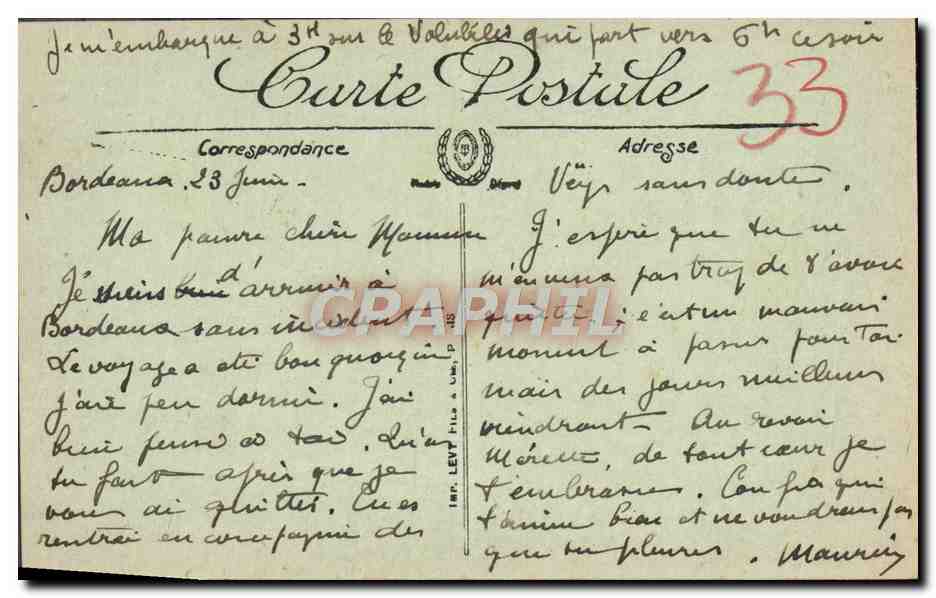 Je m'embarque à 3H sur le Volubilis qui part vers 6h ce soir
Carte Postale
33
Correspondance
Adresse
Modèle Déposé
Bordeaux, 23 Juin.
Ma pauvre chérie Maman
Je viens d'arriver à
Bordeaux sans incident
Le voyage a été bon quoique
j'aie peu dormi. J'ai
bien pensé à toi. Qu'as
tu fait après que je
vous ai quittés. Tu es
rentrée en compagnie des
IMP. LEVY FILS & Cie, PARIS
Veÿs sans doute.
J'espère que tu ne
m'en veux pas trop de t'avoir
quittée, c'est un mauvais
moment à passer pour Toi
mais des jours meilleurs
viendront. Au revoir
de tout cœur je
t'embrasse. Ton fils qui
t'aime bien et ne voudrais pas
que tu pleures. Maurice
CPAPHIL